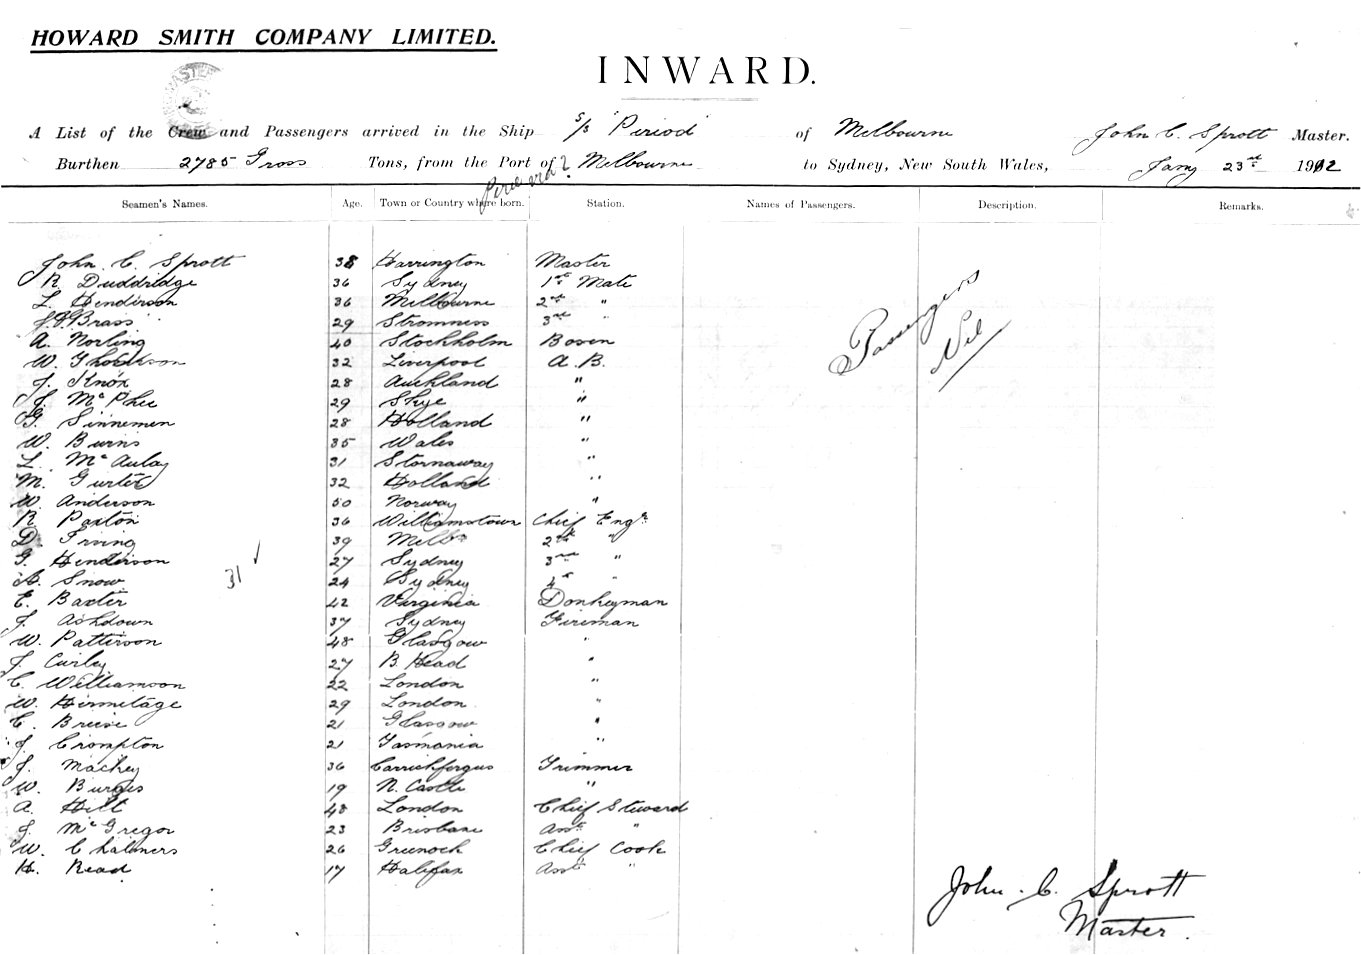 HOWARD SMITH COMPANY LIMITED.
INWARD.
A List of the Crew and Passengers arrived in the Ship S/S "Period" of Melbourne John C. Sprott Master.
Burthen 2785 Gross Tons, from the Port of Melbourne to Sydney, New South Wales, Jany 23rd 1912
Seamen's Names. Age. Town or Country where born. Station. Names of Passengers. Description. Remarks.
John C. Sprott 38 Harrington Master
R. Duddridge 36 Sydney 1st Mate
L. Henderson 36 Melbourne 2nd "
Brass 29 Stromness 3rd "
A. Norling 40 Stockholm Bosen
W. 32 Liverpool A.B.
J. Knox 28 Auckland "
J. McPhee 29 Skye "
G. Sinnemen 28 Holland "
W. Burns 35 Wales "
L. McAulay 31 Stornaway "
M. Gurtec 32 Holland "
W. Anderson 50 Norway "
R. Paxton 36 Williamstown Chief Engr
D. Irving 39 Melb 2nd "
G. Henderson 27 Sydney 3rd "
A. Snow 24 Sydney 4th "
E. Baxter 42 Virginia Donkeyman
J. Ashdown 37 Sydney Fireman
W. Patterson 48 Glasgow "
J. Curley 27 B. Head "
C. Williamson 22 London "
W. Hermitage 29 London "
C. Breeve 21 Glasgow "
J. Crompton 21 Tasmania "
J. Mackey 36 Carrickfergus Trimmer
W. Burges 19 N. Castle "
A. Hill 48 London Chief Steward
J. McGregor 23 Brisbane Asst "
W. Chalmers 26 Greenock Chief Cook
H. Read 17 Halifax Asst "
31
Passengers
Nil
John C. Sprott
Master.